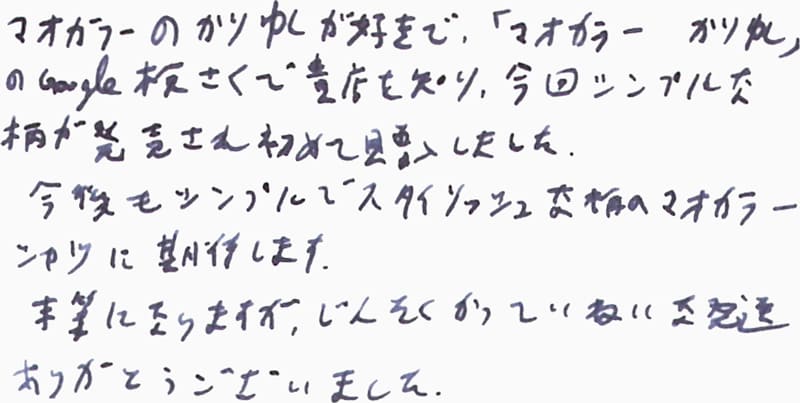 マオカラーのかりゆしが好きで、「マオカラー かりゆし」
のGoogle検さくで貴店を知り、今回シンプルな
柄が発売され初めて購入しました。
今後もシンプルでスタイリッシュな柄のマオカラー
シャツに期待します。
末筆になりますが、じんそくかつていねいな発送
ありがとうございました。